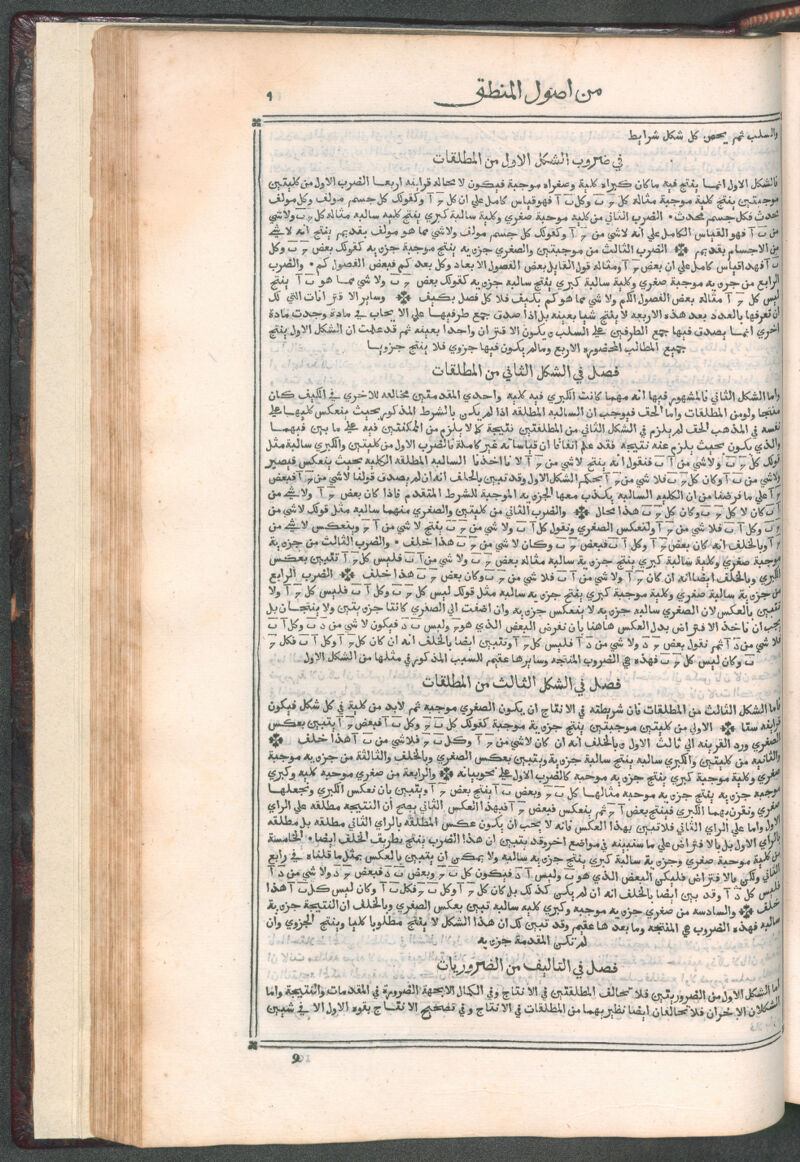 من اصول المنطق
٩
والسلب ثم يخص كل شكل شرايط
في ضروب الشكل الاول من المطلقات
فالشكل الاول انما ينتج فيه ما كان كبراه كلية وصغراه موجبة فيكون لا محاله قراينه اربعا الضرب الاول من كليتين
موجبتين ينتج كلية موجبة مثاله كل ج ب وكل ب آ فهو قياس كامل علي ان كل ج آ وكقولك كل جسم مولف وكل مولف
محدث فكل جسم محدث ٠ الضرب الثاني من كليه موجبة صغري وكلية سالبة كبري ينتج كليه سالبه مثاله كل ج ب ولا شي
من ب آ فهو القياس الكامل علي انه لا شي من ج آ وكقولك كل جسم مولف ولا شي مما هو مولف بقديم ينتج انه لا شي
من الاجسام بقديم ※ الضرب الثالث من موجبتين والصغري جزءيه ينتج موجبة جزءيه كقولك بعض ج ب وكل
ب آ فهذا قياس كامل علي ان بعض ج آ ومثاله قول القايل بعض الفصول الابعاد وكل بعد كم فبعض الفصول كم ٠ والضرب
الرابع من جزءيه موجبة صغري وكلية سالبة كبري ينتج سالبه جزءيه كقولك بعض ج ب ولا شي مما هو ب آ ينتج
ليس كل ج آ مثاله بعض الفصول الكم ولا شي مما هو كم بكيف فلا كل فصل بكيف ※ وساير الاقترانات التي لك
ان تعرفها بالعدد بعد هذه الاربعه لا ينتج شيا بعينه بل اذا صدق جمع طرفيها علي الايجاب في مادة وجدت مادة
اخري انما يصدق فيها جمع الطرفين علي السلب ويكون الاقتران واحدا بعينه ثم قد علمت ان الشكل الاول ينتج
جميع المطالب المحصوره الاربع وما لم يكون فيها جزوي فلا ينتج جزويا
فصل في الشكل الثاني من المطلقات
واما الشكل الثاني فالمشهور فيها انه مهما كانت الكبري فيه كليه واحدي المقدمتين مخالفه للاخري في الكيف كان
منتجا ولو من المطلقات واما الحق فيوجب ان السالبه المطلقه اذا لم يكن بالشرط المذكور بحيث ينعكس كليها علي
نفسه في المذهب الحق لم يلزم في الشكل الثاني من المطلقتين نتيجة كما لا يلزم من الممكنتين فيه علي ما بين فيهما
والذي يكون بحيث يلزم عنه نتيجه فقد علم اتفاقا ان قياساته غير كاملة بالضرب الاول من كليتين والكبري سالبة مثل
قولك كل ج ب ولا شي من آ ب فنقول انه ينتج لا شي من ج آ لانا اخذنا السالبه المطلقه الكليه بحيث ينعكس فيصير
ولا شي من ب آ وكان كل ج ب فلا شي من ج آ بحكم الشكل الاول وقد تبين بالخلف انه ان لم يصدق قولنا لا شي من ج آ فبعض
ج آ علي ما فرضنا من ان الكليه السالبه يكذب معها الجزءيه الموجبة للشرط المتقدم فاذا كان بعض ج آ ولا شي من
آ ب كان لا كل ج ب وكان كل ج ب هذا محال ※ والضرب الثاني من كليتين والصغري منهما سالبه مثل قولك لا شي من
ج ب وكل آ ب فلا شي من ج آ ولنعكس الصغري ونقول كل آ ب ولا شي من ب ج ينتج لا شي من آ ج وينعكس لا شي من
ج آ وبالخلف انه كان بعض ج آ وكل آ ب فبعض ج ب وكان لا شي من ج ب هذا خلف ٠ والضرب الثالث من جزءية
موجبة صغري وكلية سالبة كبري ينتج جزءيه سالبه مثاله بعض ج ب ولا شي من آ ب فليس كل ج آ تتبين بعكس
الكبري وبالخلف ايضا انه ان كان كل ج آ ولا شي من آ ب فلا شي من ج ب وكان بعض ج ب هذا خلف ※ الضرب الرابع
من جزءيه سالبة صغري وكلية موجبة كبري ينتج جزءيه سالبه مثل قولك ليس كل ج ب وكل آ ب فليس كل ج آ ولا
تتبين بالعكس لان الصغري سالبه جزءيه لا ينعكس جزءيه وان اضفت الي الصغري كانتا جزءيتين ولا ينتجان بل
يجب ان ناخذ الافتراض بدل العكس هاهنا بان نفرض البعض الذي هو ج وليس ب د فيكون لا شي من د ب وكل آ ب
فلا شي من د آ ثم نقول بعض ج د ولا شي من د آ فليس كل ج آ وتتبين ايضا بالخلف انه ان كان كل ج آ وكل آ ب فكل ج
ب وكان ليس كل ج ب فهذه هي الضروب المنتجه وسايرها عقيم للسبب المذكور في مثلها من الشكل الاول
فصل في الشكل الثالث من المطلقات
فاما الشكل الثالث من المطلقات فان شريطته في الانتاج ان يكون الصغري موجبه ثم لابد من كلية في كل شكل فيكون
قراينه ستا ※ الاولي من كليتين موجبتين ينتج جزءيه موجبة كقولك كل ب ج وكل ب آ فبعض ج آ يتبين بعكس
الصغري ورد القرينه الي ثالث الاول وبالخلف انه ان كان لا شي من ج آ وكل ب ج فلا شي من ب آ هذا خلف ※
والثانيه من كليتين والكبري سالبه ينتج سالبة جزءية ويتبين بعكس الصغري وبالخلف والثالثة من جزءيه موجبة
صغري وكلية موجبة كبري ينتج جزءيه موجبه كالضرب الاول علي نحو بيانه ※ والرابعة من صغري موجبه كليه وكبري
موجبه جزءيه ينتج جزءيه موجبه مثالها كل ب ج وبعض ب آ ينتج بعض ج آ ويتبين بان نعكس الكبري ونجعلها
صغري ونقرن بهما الكبري فينتج بعض آ ج ثم ينعكس فبعض ج آ فبهذا العكس الثاني يصح ان النتيجه مطلقه علي الراي
الاول واما علي الراي الثاني فلا تبين بهذا العكس فانه لا يجب ان يكون عكس المطلقه بالراي الثاني مطلقه بل مطلقه
بالراي الاول بل بالافتراض علي ما ستبينه في مواضع اخر وقد بتبين ان هذا الضرب ينتج بطريق الخلف ايضا ٠ الخامسة
من كلية موجبة صغري وجزءية سالبة كبري ينتج جزءيه سالبه ولا يمكن ان يتبين بالعكس بمثل ما قلناه في رابع
الثاني ولكن بالافتراض فليكن البعض الذي هو ب وليس آ د فيكون كل ب ج وبعض ب د فبعض ج د ولا شي من د آ
فليس كل ج آ وقد بين ايضا بالخلف انه ان لم يكن كذلك بل كان كل ج آ وكل ب ج فكل ب آ وكان ليس كل ب آ هذا
خلف ※ والسادسه من صغري جزءيه موجبه وكبري كليه سالبه تبين بعكس الصغري وبالخلف ان النتيجة جزءية
سالبه فهذه الضروب هي المنتجه وما بعدها عقيم وقد تبين لك ان هذا الشكل لا ينتج مطلوبا كليا وينتج الجزوي وان
لم تكن المقدمة جزءيه
فصل في التاليف من الضروريات
اما الشكل الاول من الضروريتين فلا تخالف المطلقتين في الانتاج وفي الكمال الا بجهة الضرورة في المقدمات والنتيجة واما
الشكلان الاخران فلا تخالفان ايضا نظيريهما من المطلقات في الانتاج وفي تصحيح الانتاج بقوه الاول الا في شيين
و